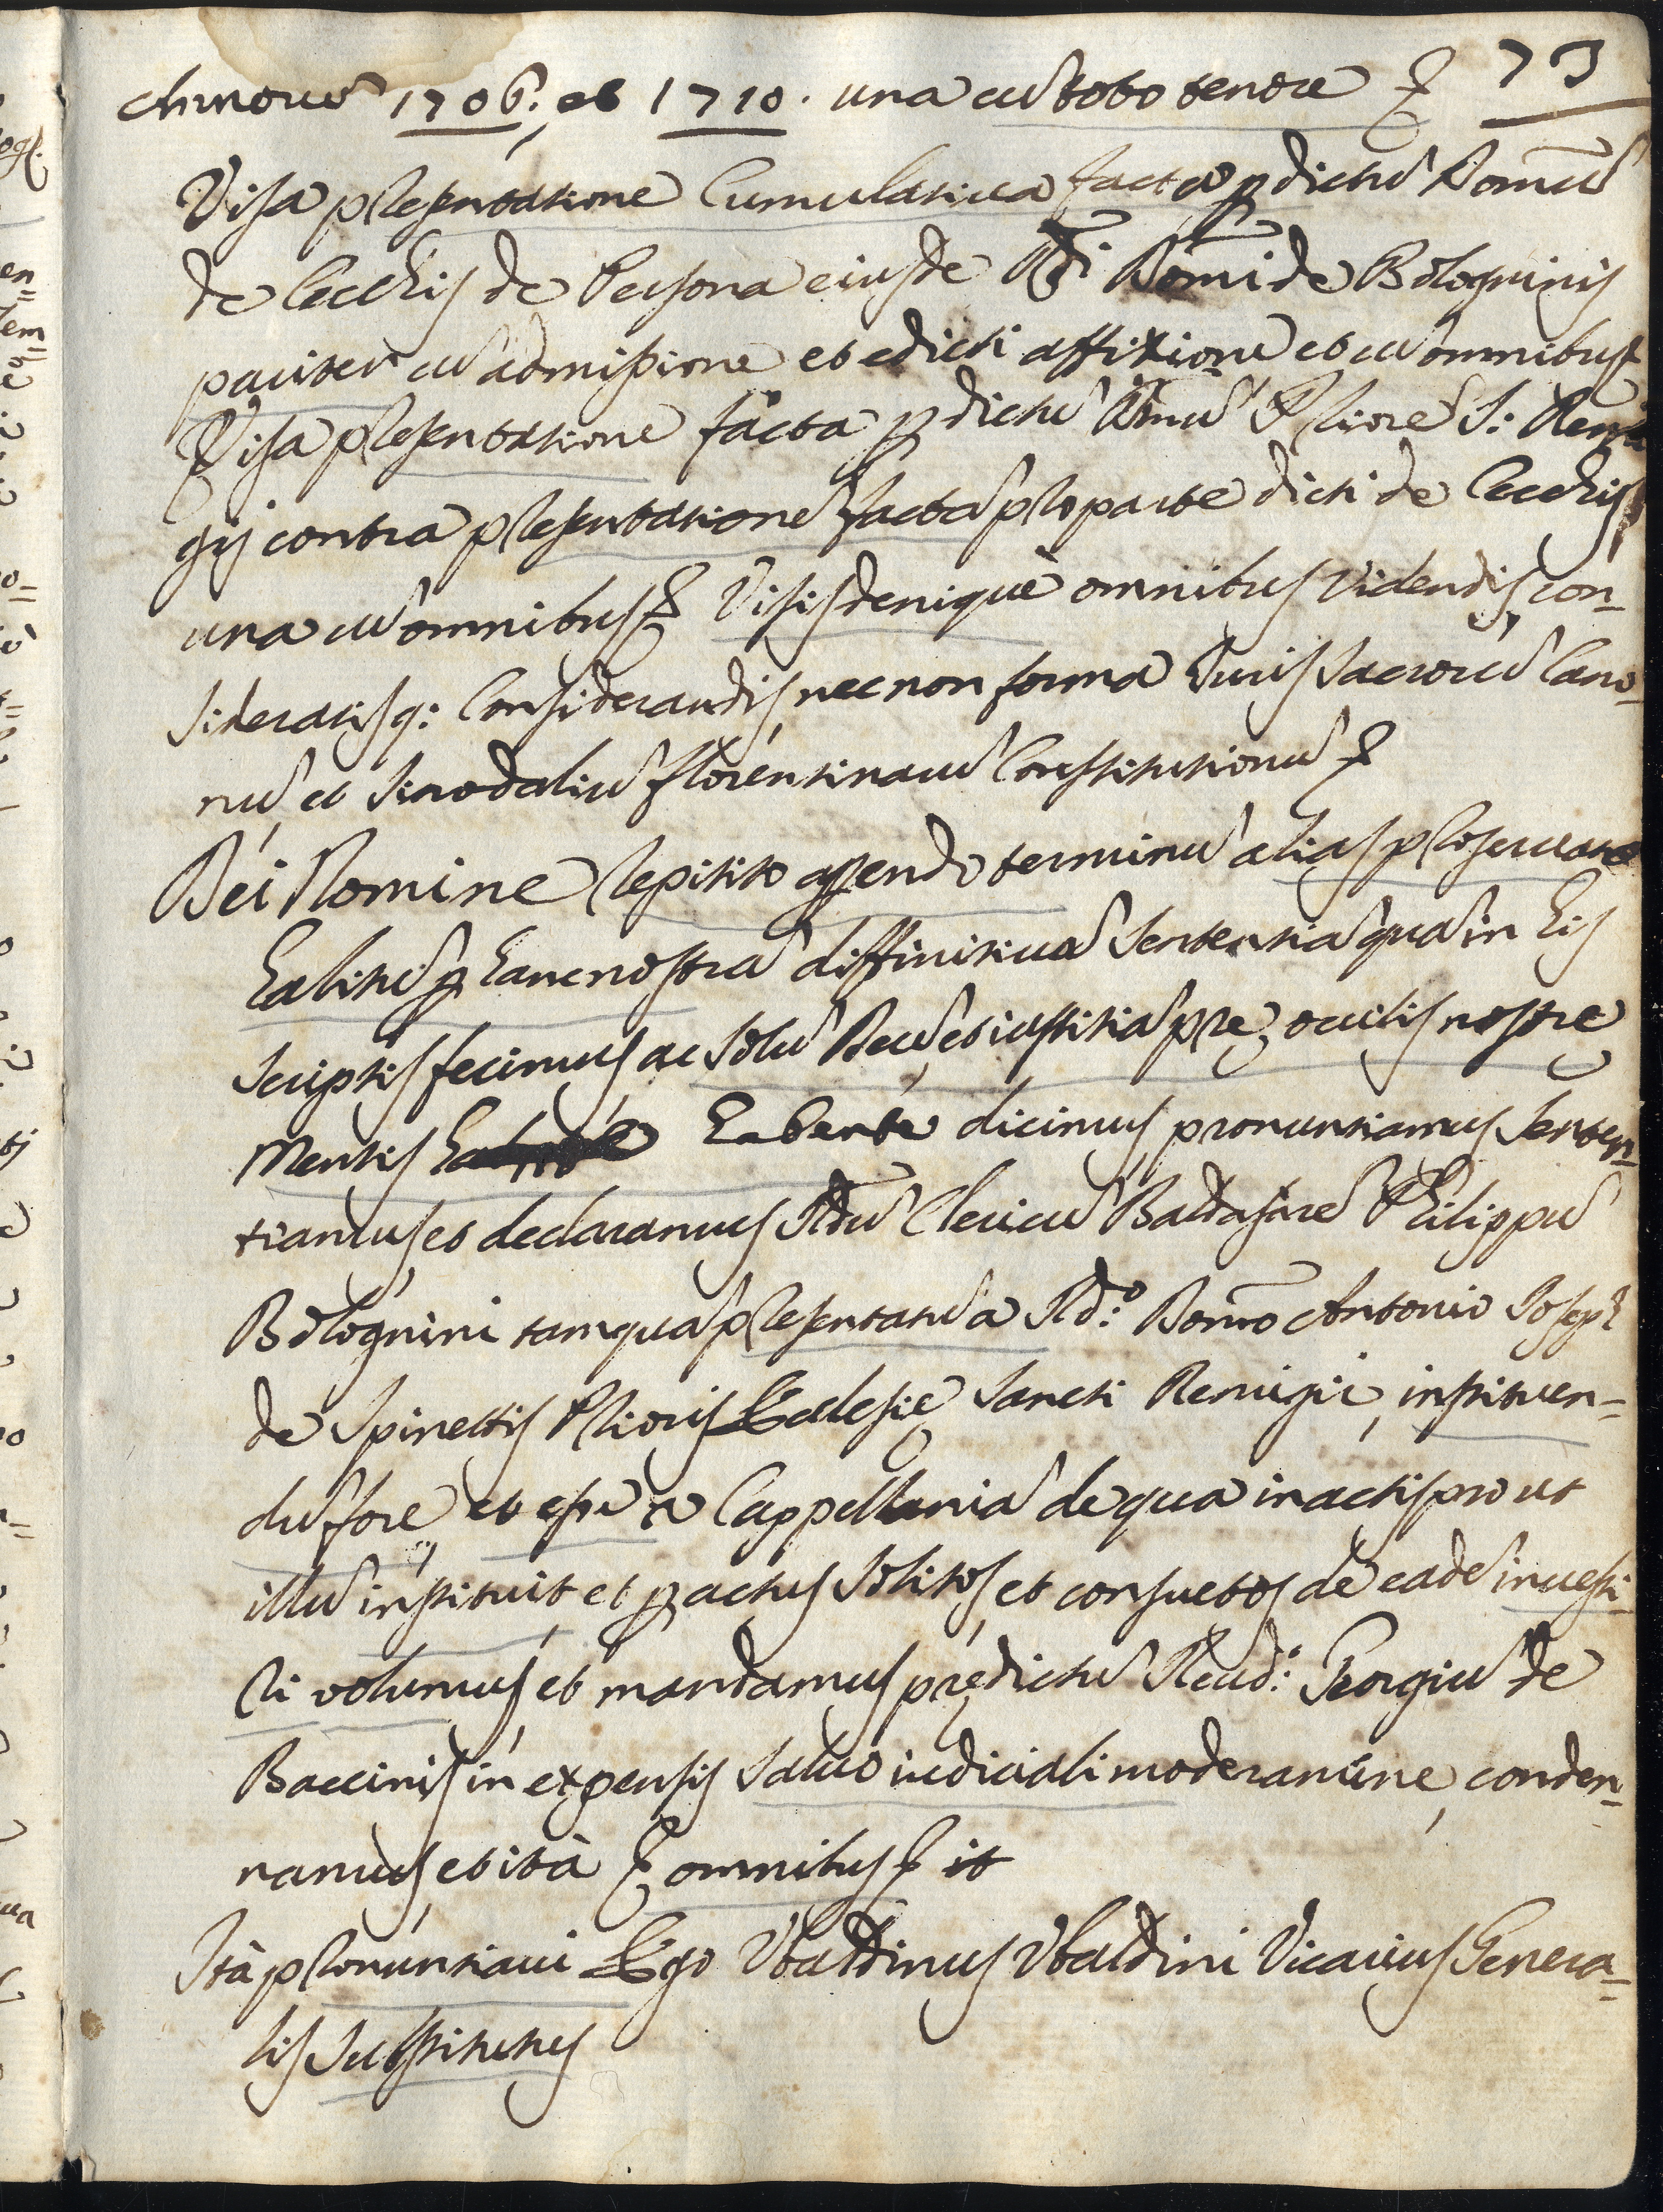 73
Annorũ 1706. et 1710. una cũ toto tenore &
Visa presentatione Cumulatiua facta p dictũ Domũ
de Cecchis de Persona eiusdẽ Rdi Domi de Bologninis
pariter cũ admissione et edicti affixione et cũ omnibus &
Visa presentatione facta p dictũ Domũ Priorẽ S: Remi
gij contra presentationẽ factã pro parte dicti de Cecchis
una cũ omnibus & Visis denique omnibus videndis, con=
sideratisq: Considerandis, nec non forma Iuris Sacrorũ Cano=
nũ, et Sinodaliũ florentinarũ Constitutionũ &
Dei Nomine repitito asserendo terminũ alias proseruatio
habitũ p hanc nostrã diffinitiuã Sententiã quã in his
scriptis fecimus ac solũ Deũ, et iustitiã pre oculis nostre
Mentis habente dicimus, pronuntiamus Senten=
tiamus, et declaramus Rdũ Clericũ Baldasarẽ Philippũ
Bolognini tamquã presentatũ a Rdo: Domo Antonio Joseph
de Spinettis Prioris Ecclesię Sancti Remigii, instituen=
dũ fore, et esse in Cappellania de qua in actis prout
illũ instituit et p actus solitos, et consuetos de eadẽ inuesti=
ri volumus, et mandamus prędictũ Reud: Georgiũ de
Baccinis in expensis saluo iudiciali moderamine, condem=
namus, et ità & omnibus &
Ità pronuntiaui Ego Vbaldinus Vbaldini Vicarius Genera=
lis Substitutus